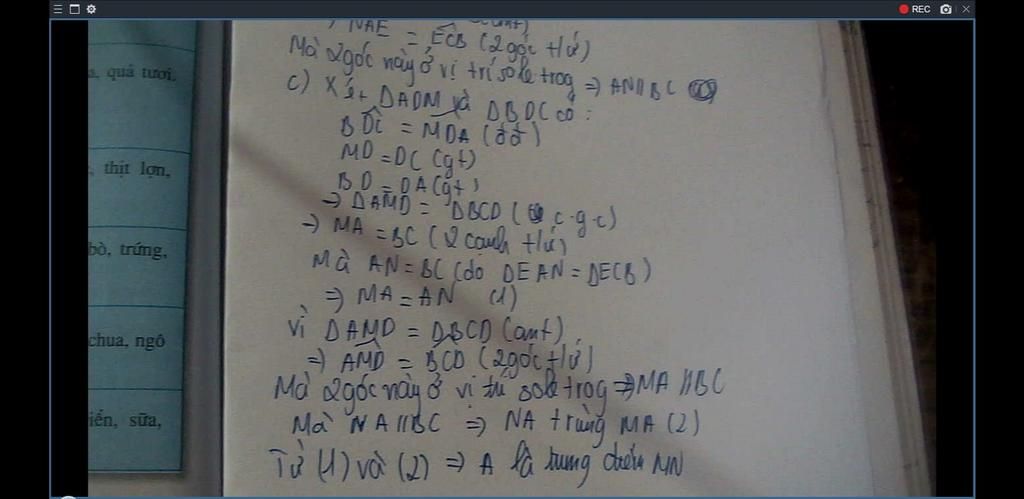 REC
, quả tươi.
, thịt lợn,
bò, trứng,
chua, ngô
iển, sữa,
⇒ NAE = ECB (2 góc t/ứ)
Mà 2 góc này ở vị trí sole trog ⇒ AN//BC
c) Xét ΔADM và ΔBDC có:
BDC = MDA (đđ)
MD = DC (gt)
BD = DA (gt)
⇒ ΔAMD = ΔBCD (c.g.c)
⇒ MA = BC (2 cạnh t/ứ)
Mà AN = BC (do ΔEAN = ΔECB)
⇒ MA = AN (1)
Vì ΔAMD = ΔBCD (cmt)
⇒ AMD = BCD (2 góc t/ứ)
Mà 2 góc này ở vị trí sole trog ⇒ MA//BC
Mà NA//BC ⇒ NA trùng MA (2)
Từ (1) và (2) ⇒ A là trung điểm MN